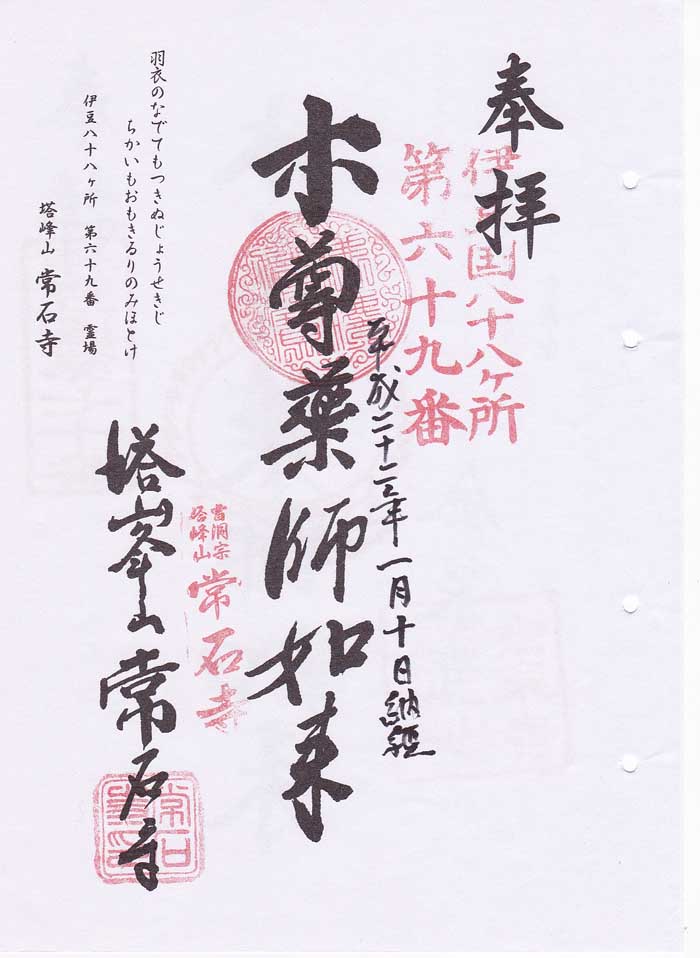 奉拝
伊豆国八十八ヶ所
第六十九番
平成二十三年一月十日納経
本尊薬師如来
曹洞宗
塔峰山
常石寺
塔峯山常石寺
羽衣のなでてもつきぬじょうせきじ
ちかいもおもきるりのみほとけ
伊豆八十八ヶ所 第六十九番 霊場
塔峰山 常石寺